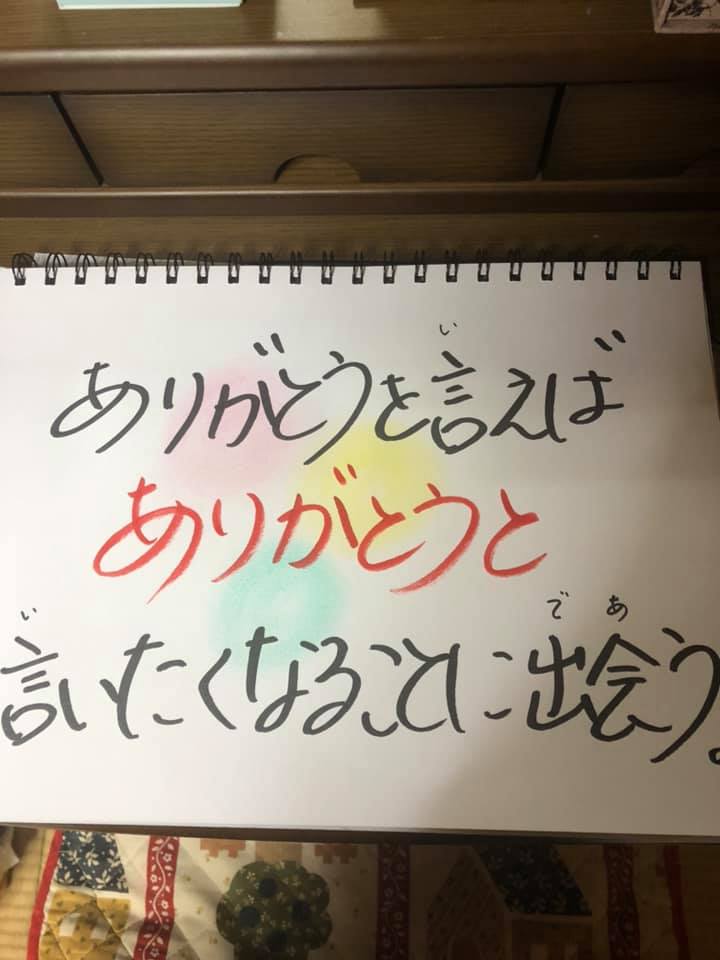 ありがとうを言えば
ありがとうと
言いたくなることに出会う。